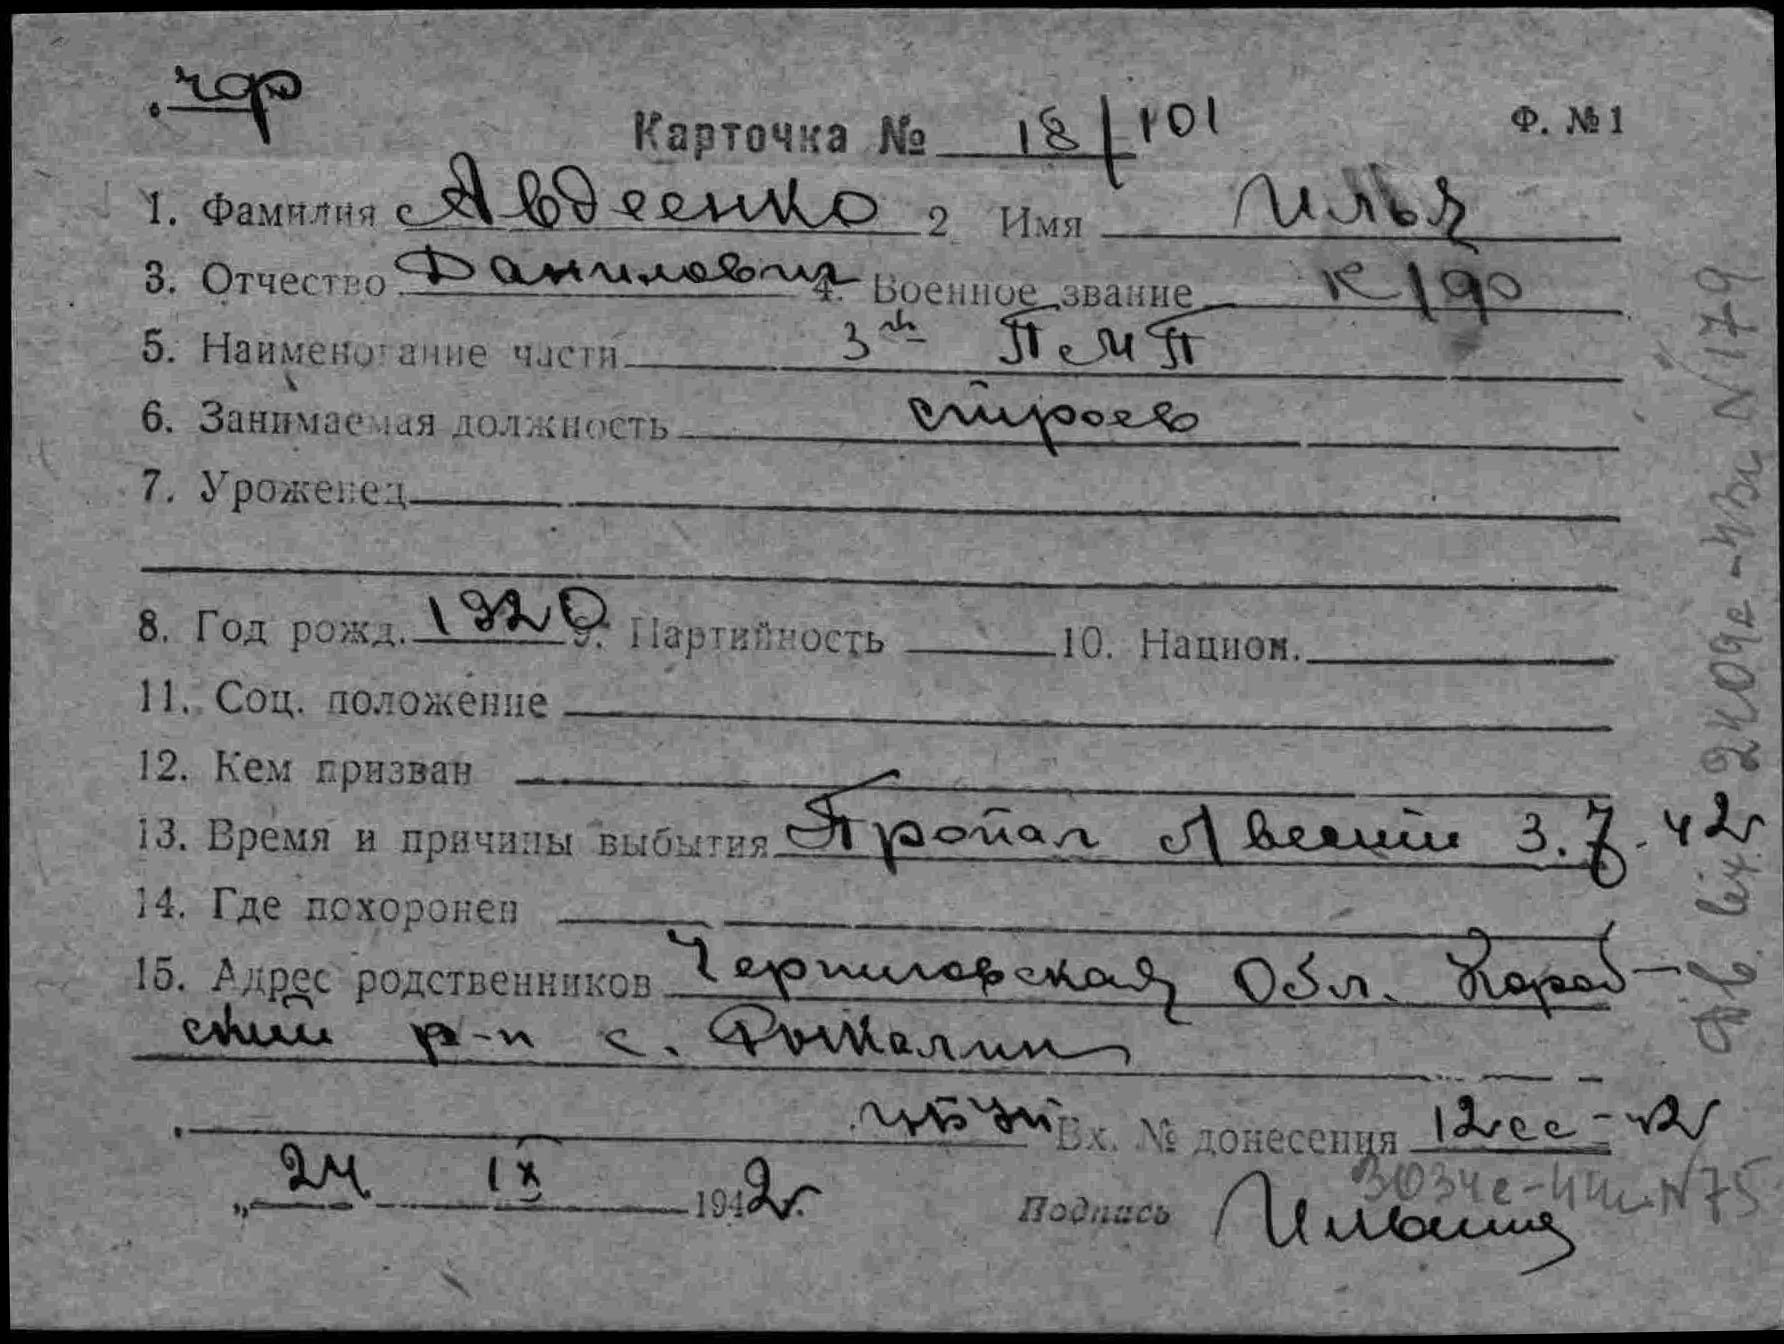 чф
Карточка № 18/101 Ф. №1
1. Фамилия Авдеенко 2 Имя Илья
3. Отчество Данилович 4. Военное звание к/ф
5. Наименование части 3й ПМП
6. Занимаемая должность строев
7. Уроженец
8. Год рожд. 1920 9. Партийность 10. Национ.
11. Соц. положение
12. Кем призван
13. Время и причины выбытия Пропал Авести 3.7.42г
14. Где похоронен
15. Адрес родственников Черниговская Обл. Короб-
ский р-н с. Рыжалин
Вх. № донесения 12сс-42
„24 IX 1942г.
Подпись